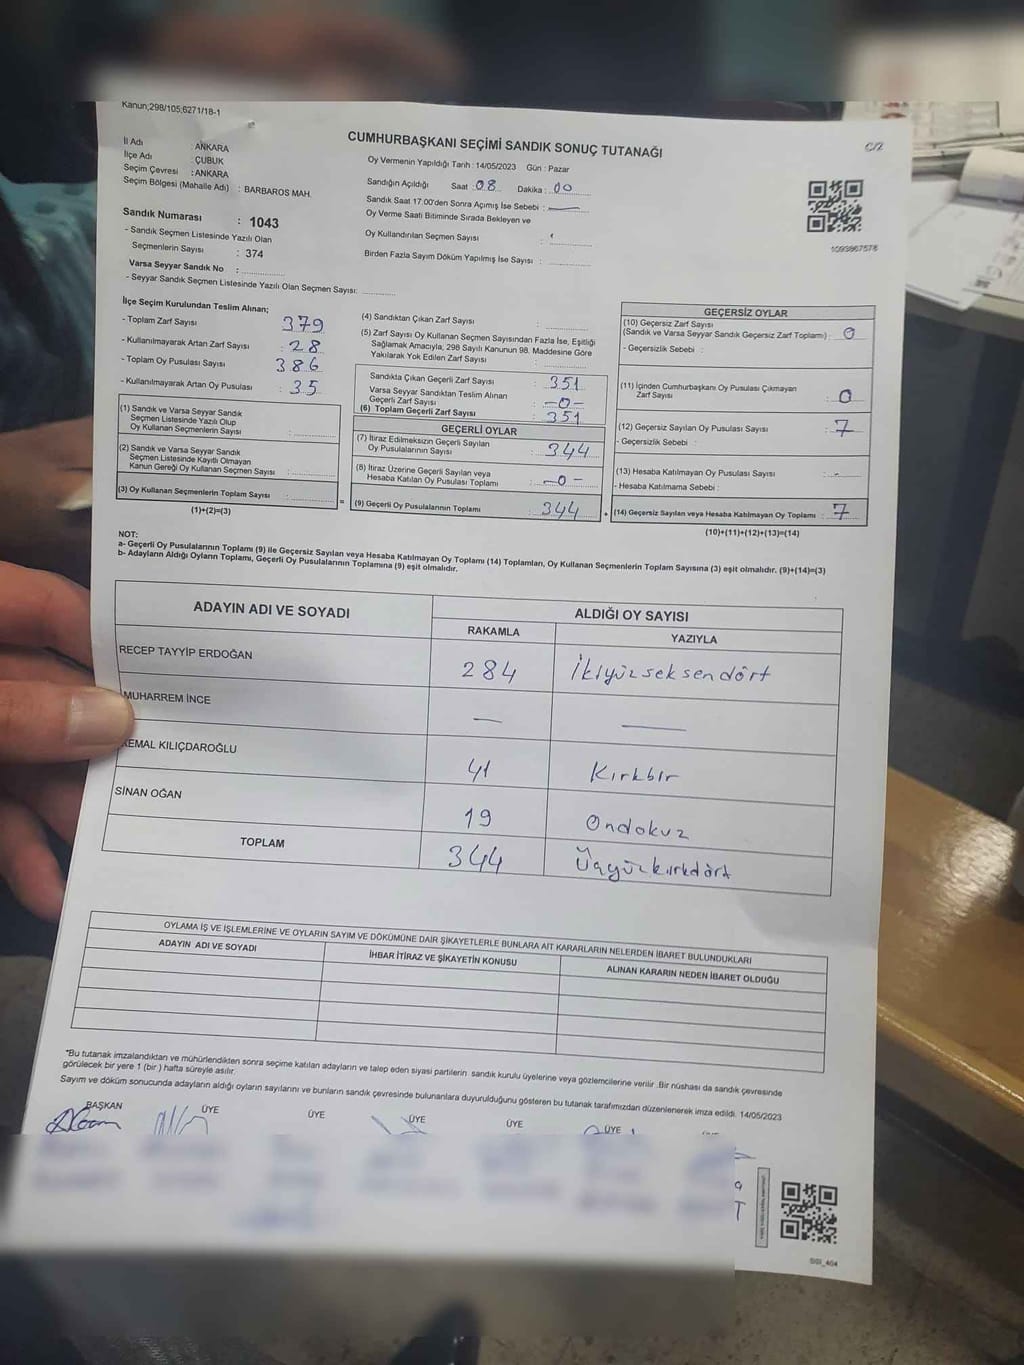 Kanun;298/105;6271/18-1
CUMHURBAŞKANI SEÇİMİ SANDIK SONUÇ TUTANAĞI
C/2
İl Adı : ANKARA
İlçe Adı : ÇUBUK
Seçim Çevresi : ANKARA
Seçim Bölgesi (Mahalle Adı) : BARBAROS MAH.
Sandık Numarası : 1043
- Sandık Seçmen Listesinde Yazılı Olan
Seçmenlerin Sayısı : 374
Varsa Seyyar Sandık No :
- Seyyar Sandık Seçmen Listesinde Yazılı Olan Seçmen Sayısı:
Oy Vermenin Yapıldığı Tarih : 14/05/2023 Gün : Pazar
Sandığın Açıldığı Saat : 08 Dakika : 00
Sandık Saat 17.00'den Sonra Açımış İse Sebebi : —
Oy Verme Saati Bitiminde Sırada Bekleyen ve
Oy Kullandırılan Seçmen Sayısı :
Birden Fazla Sayım Döküm Yapılmış İse Sayısı :
1093867576
İlçe Seçim Kurulundan Teslim Alınan;
- Toplam Zarf Sayısı : 379
- Kullanılmayarak Artan Zarf Sayısı : 28
- Toplam Oy Pusulası Sayısı : 386
- Kullanılmayarak Artan Oy Pusulası : 35
(1) Sandık ve Varsa Seyyar Sandık
Seçmen Listesinde Yazılı Olup
Oy Kullanan Seçmenlerin Sayısı :
(2) Sandık ve Varsa Seyyar Sandık
Seçmen Listesinde Kayıtlı Olmayan
Kanun Gereği Oy Kullanan Seçmen Sayısı :
(3) Oy Kullanan Seçmenlerin Toplam Sayısı :
(1)+(2)=(3)
(4) Sandıktan Çıkan Zarf Sayısı :
(5) Zarf Sayısı Oy Kullanan Seçmen Sayısından Fazla İse, Eşitliği
Sağlamak Amacıyla, 298 Sayılı Kanunun 98. Maddesine Göre
Yakılarak Yok Edilen Zarf Sayısı :
Sandıkta Çıkan Geçerli Zarf Sayısı : 351
Varsa Seyyar Sandıktan Teslim Alınan
Geçerli Zarf Sayısı : -0-
(6) Toplam Geçerli Zarf Sayısı : 351
GEÇERLİ OYLAR
(7) İtiraz Edilmeksizin Geçerli Sayılan
Oy Pusulalarının Sayısı : 344
(8) İtiraz Üzerine Geçerli Sayılan veya
Hesaba Katılan Oy Pusulası Toplamı : -0-
= (9) Geçerli Oy Pusulalarının Toplamı : 344 +
GEÇERSİZ OYLAR
(10) Geçersiz Zarf Sayısı
(Sandık ve Varsa Seyyar Sandık Geçersiz Zarf Toplamı) : 0
- Geçersizlik Sebebi :
(11) İçinden Cumhurbaşkanı Oy Pusulası Çıkmayan
Zarf Sayısı : 0
(12) Geçersiz Sayılan Oy Pusulası Sayısı : 7
- Geçersizlik Sebebi :
(13) Hesaba Katılmayan Oy Pusulası Sayısı : -
- Hesaba Katılmama Sebebi :
(14) Geçersiz Sayılan veya Hesaba Katılmayan Oy Toplamı : 7
(10)+(11)+(12)+(13)=(14)
NOT:
a- Geçerli Oy Pusulalarının Toplamı (9) ile Geçersiz Sayılan veya Hesaba Katılmayan Oy Toplamı (14) Toplamları, Oy Kullanan Seçmenlerin Toplam Sayısına (3) eşit olmalıdır. (9)+(14)=(3)
b- Adayların Aldığı Oyların Toplamı, Geçerli Oy Pusulalarının Toplamına (9) eşit olmalıdır.
ADAYIN ADI VE SOYADI ALDIĞI OY SAYISI
RAKAMLA YAZIYLA
RECEP TAYYİP ERDOĞAN 284 İkiyüzseksendört
MUHARREM İNCE — —
KEMAL KILIÇDAROĞLU 41 Kırkbir
SİNAN OĞAN 19 Ondokuz
TOPLAM 344 Üçyüzkırkdört
OYLAMA İŞ VE İŞLEMLERİNE VE OYLARIN SAYIM VE DÖKÜMÜNE DAİR ŞİKAYETLERLE BUNLARA AİT KARARLARIN NELERDEN İBARET BULUNDUKLARI
ADAYIN ADI VE SOYADI İHBAR İTİRAZ VE ŞİKAYETİN KONUSU ALINAN KARARIN NEDEN İBARET OLDUĞU
*Bu tutanak imzalandıktan ve mühürlendikten sonra seçime katılan adayların ve talep eden siyasi partilerin sandık kurulu üyelerine veya gözlemcilerine verilir. Bir nüshası da sandık çevresinde
görülecek bir yere 1 (bir) hafta süreyle asılır.
Sayım ve döküm sonucunda adayların aldığı oyların sayılarını ve bunların sandık çevresinde bulunanlara duyurulduğunu gösteren bu tutanak tarafımızdan düzenlenerek imza edildi. 14/05/2023
BAŞKAN ÜYE ÜYE ÜYE ÜYE ÜYE